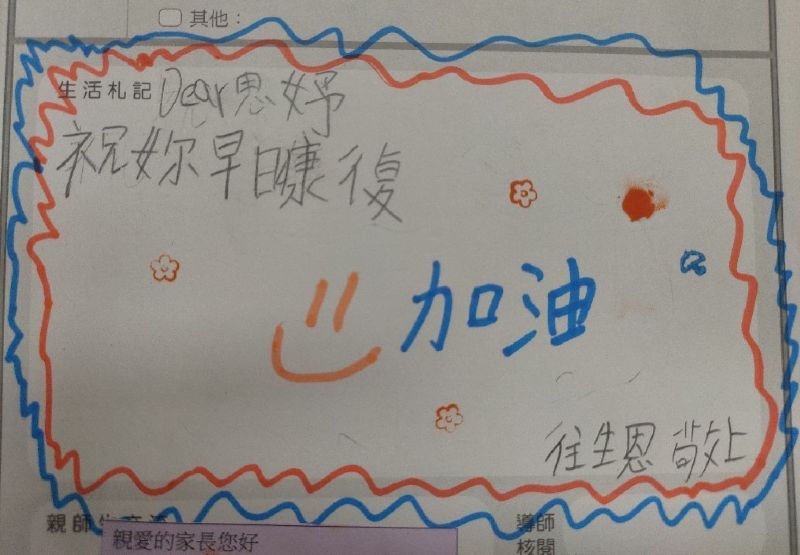 其他：
生活札記
Dear思妤
祝妳早日康復
加油
往生恩 敬上
導師
核閱
親愛的家長您好